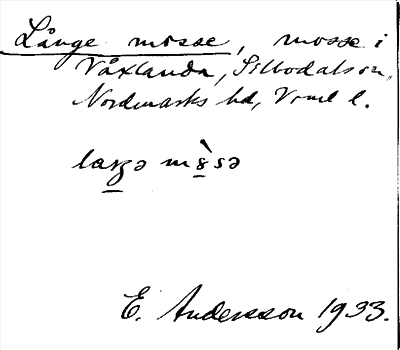 Långe mosse, mosse i
Våxlanda, Silbodals sn,
Nordmarks hd, Vrml l.
E. Andersson 1933.